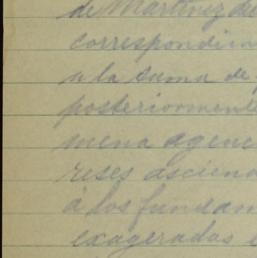 de Martinez de
correspondien
a la suma de
posteriormente
mena agenc
reses asciend
á los fundam
exageradas e